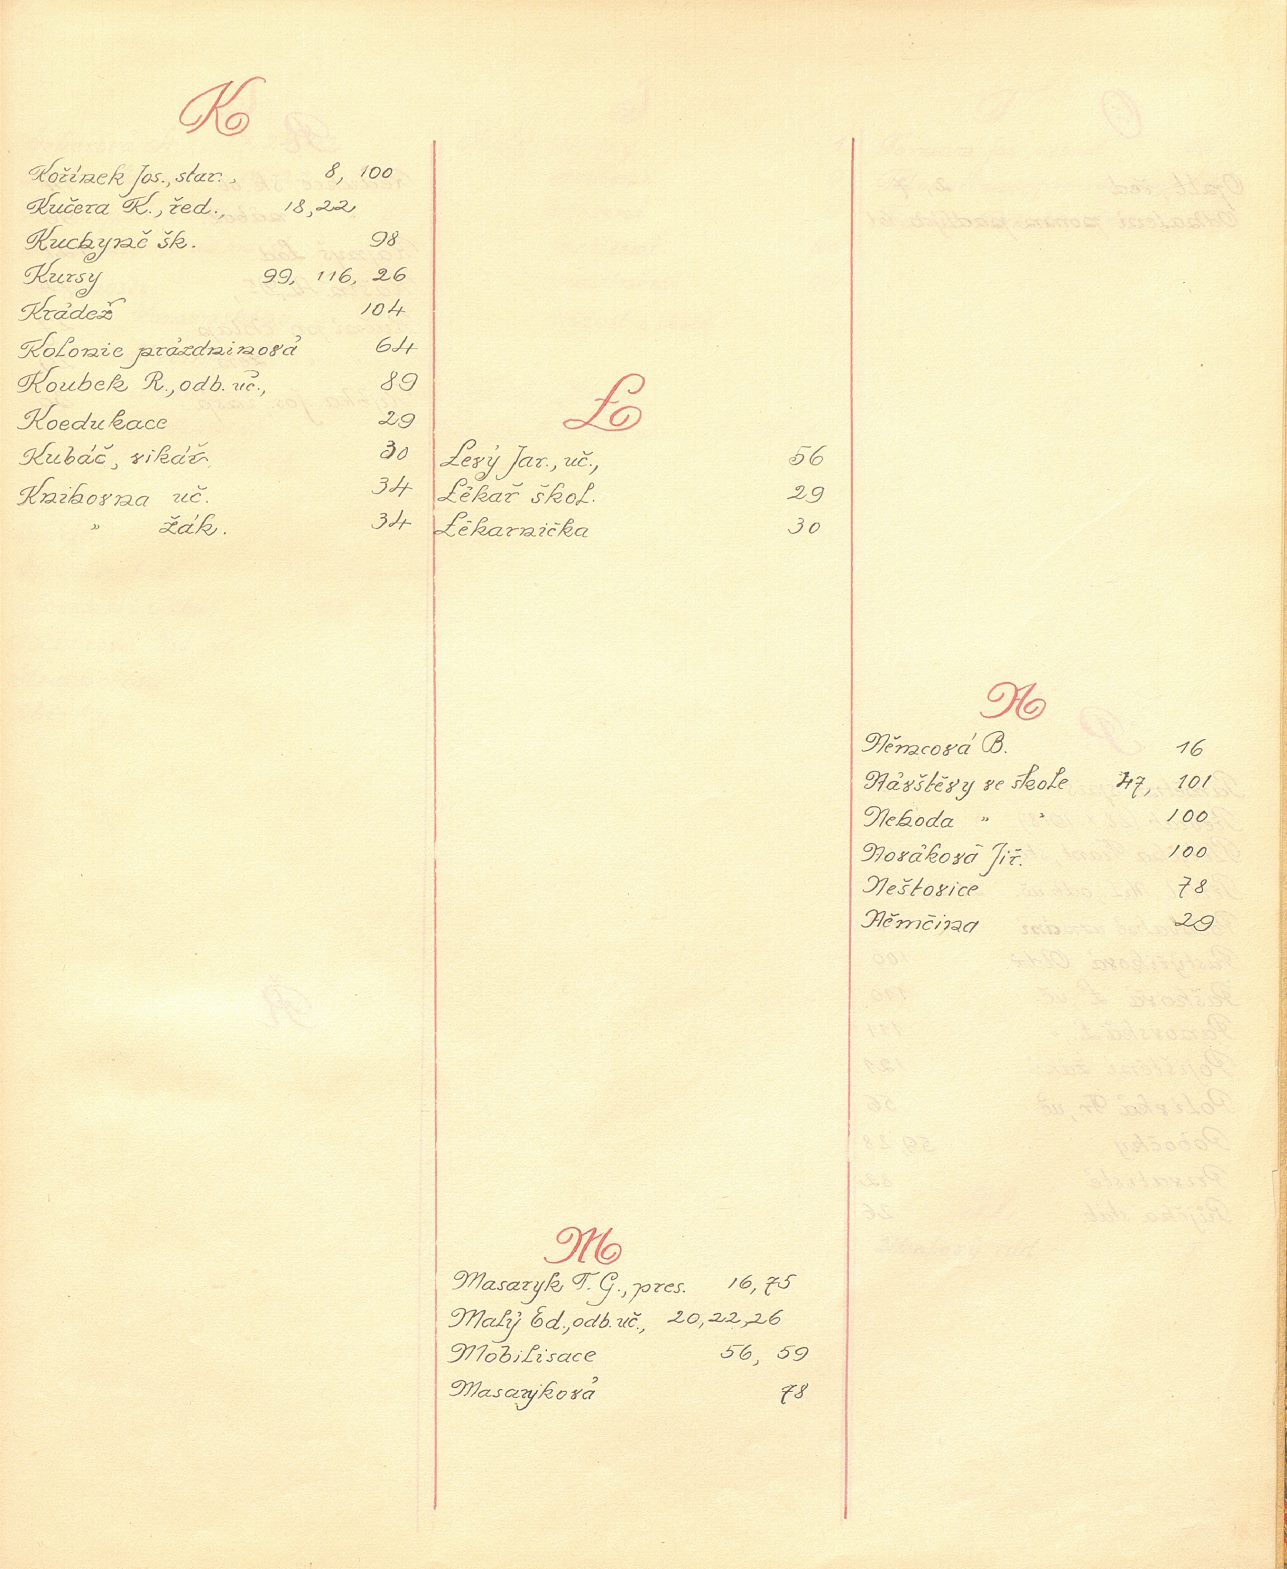 K
Kořínek Jos., star., 8, 100
Kučera K., řed., 18, 22
Kuchyně šk. 98
Kursy 99, 116, 26
Krádež 104
Kolonie prázdninová 64
Koubek R., odb. uč., 89
Koedukace 29
Kubáč, vikář 30
Knihovna uč. 34
" žák. 34
L
Levý Jar., uč., 56
Lékař škol. 29
Lékarnička 30
M
Masaryk T. G., pres. 16, 75
Malý Ed., odb. uč., 20, 22, 26
Mobilisace 56, 59
Masaryková 78
N
Němcová B. 16
Návštěvy ve škole 47, 101
Nehoda " " 100
Nováková Jiř. 100
Neštovice 78
Němčina 29